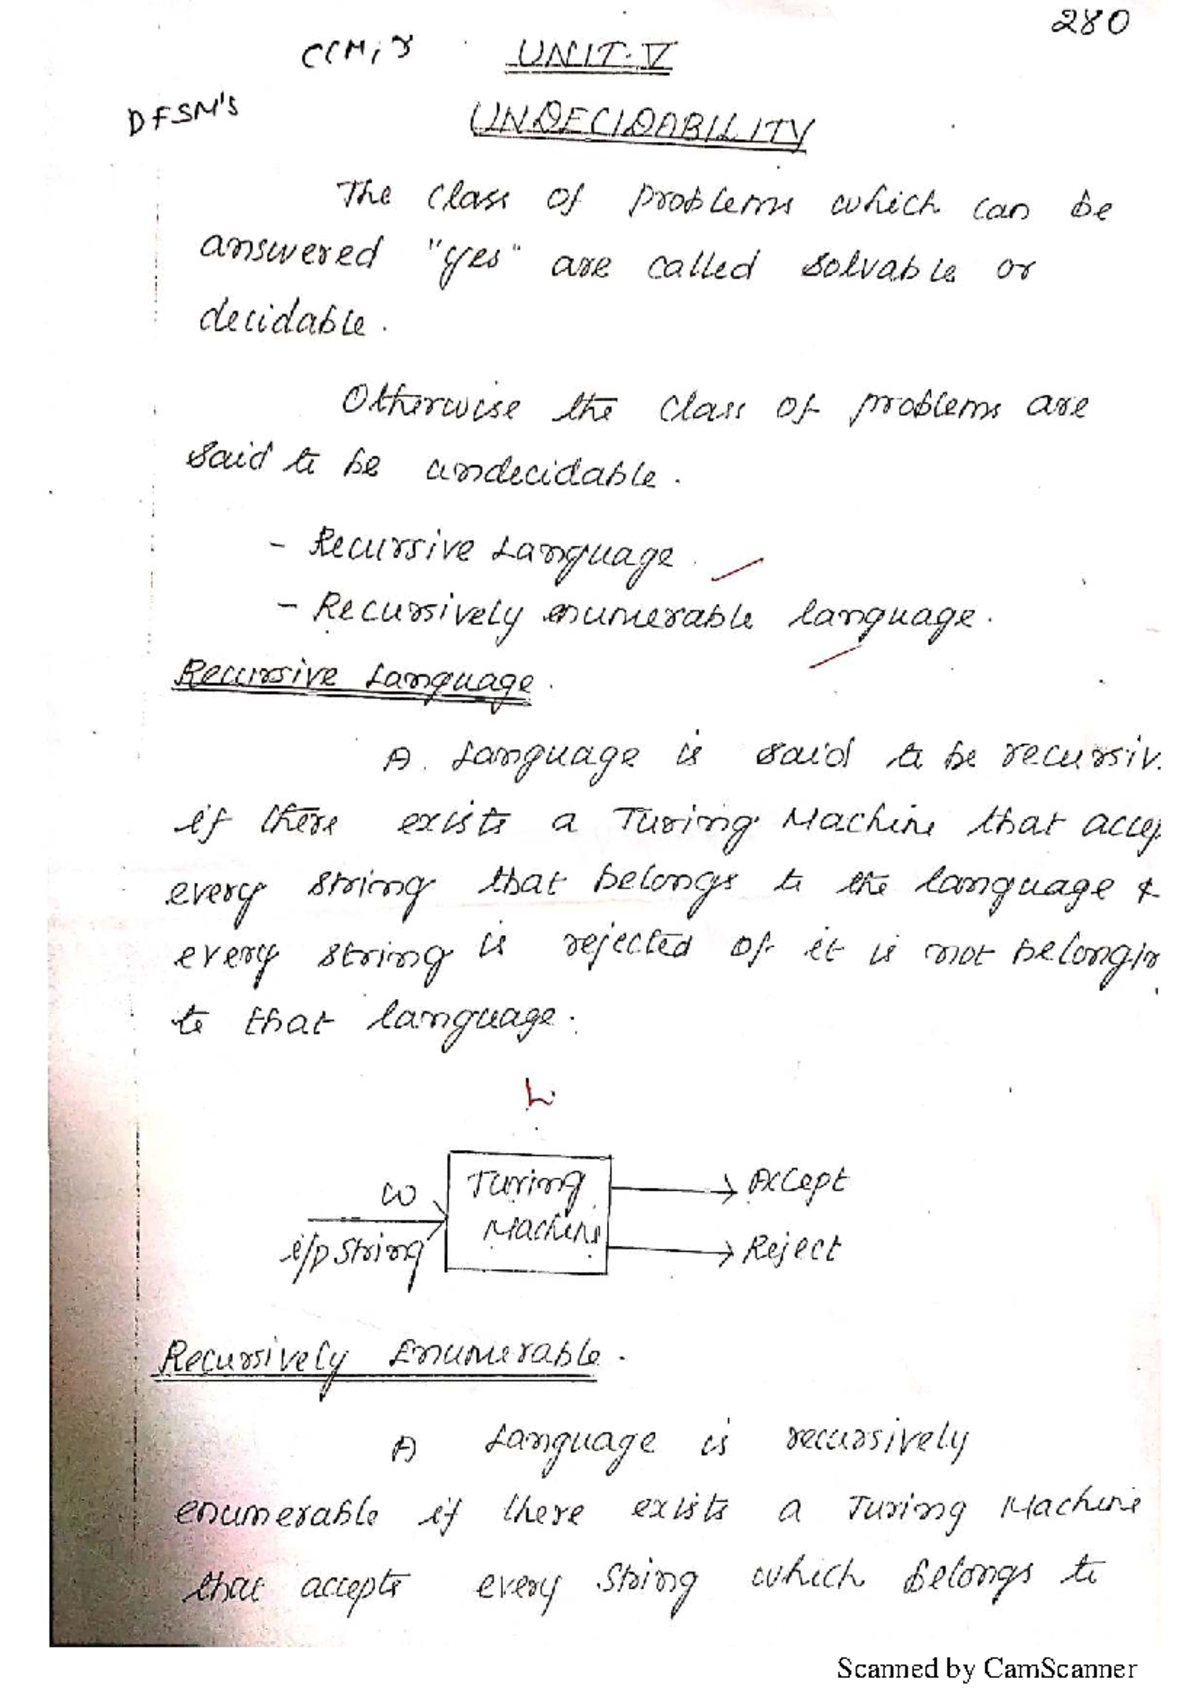 280
UNIT-V
DFSM's
UNDECIDABILITY
The class of problems which can be
answered "yes" are called solvable or
decidable.
Otherwise the class of problems are
said to be undecidable.
- Recursive Language.
- Recursively enumerable language.
Recursive Language.
A Language is said to be recursiv
if there exists a Turing Machine that accep
every string that belongs to the language &
every string is rejected of it is not belongin
to that language.
L
w
i/p string
Turing
Machine
Accept
Reject
Recursively Enumerable.
A Language is recursively
enumerable if there exists a Turing Machine
that accepts every string which belongs to
Scanned by CamScanner